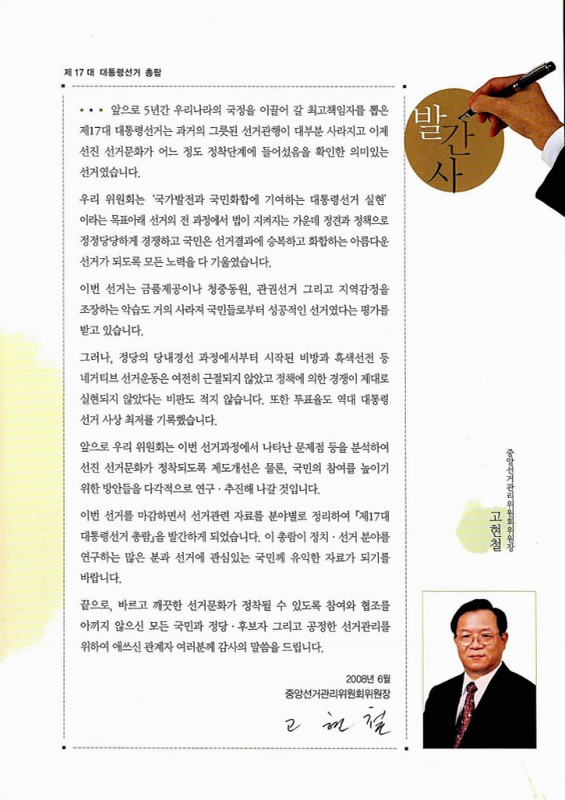 제 17 대 대통령선거 총람
발간사
앞으로 5년간 우리나라의 국정을 이끌어 갈 최고책임자를 뽑은
제17대 대통령선거는 과거의 그릇된 선거관행이 대부분 사라지고 이제
선진 선거문화가 어느 정도 정착단계에 들어섰음을 확인한 의미있는
선거였습니다.
우리 위원회는 '국가발전과 국민화합에 기여하는 대통령선거 실현'
이라는 목표아래 선거의 전 과정에서 법이 지켜지는 가운데 정견과 정책으로
정정당당하게 경쟁하고 국민은 선거결과에 승복하고 화합하는 아름다운
선거가 되도록 모든 노력을 다 기울였습니다.
이번 선거는 금품제공이나 청중동원, 관권선거 그리고 지역감정을
조장하는 악습도 거의 사라져 국민들로부터 성공적인 선거였다는 평가를
받고 있습니다.
그러나, 정당의 당내경선 과정에서부터 시작된 비방과 흑색선전 등
네거티브 선거운동은 여전히 근절되지 않았고 정책에 의한 경쟁이 제대로
실현되지 않았다는 비판도 적지 않습니다. 또한 투표율도 역대 대통령
선거 사상 최저를 기록했습니다.
앞으로 우리 위원회는 이번 선거과정에서 나타난 문제점 등을 분석하여
선진 선거문화가 정착되도록 제도개선은 물론, 국민의 참여를 높이기
위한 방안들을 다각적으로 연구·추진해 나갈 것입니다.
이번 선거를 마감하면서 선거관련 자료를 분야별로 정리하여 『제17대
대통령선거 총람』을 발간하게 되었습니다. 이 총람이 정치·선거 분야를
연구하는 많은 분과 선거에 관심있는 국민께 유익한 자료가 되기를
바랍니다.
끝으로, 바르고 깨끗한 선거문화가 정착될 수 있도록 참여와 협조를
아끼지 않으신 모든 국민과 정당·후보자 그리고 공정한 선거관리를
위하여 애쓰신 관계자 여러분께 감사의 말씀을 드립니다.
2008년 6월
중앙선거관리위원회위원장
고 현 철
중앙선거관리위원회위원장
고현철